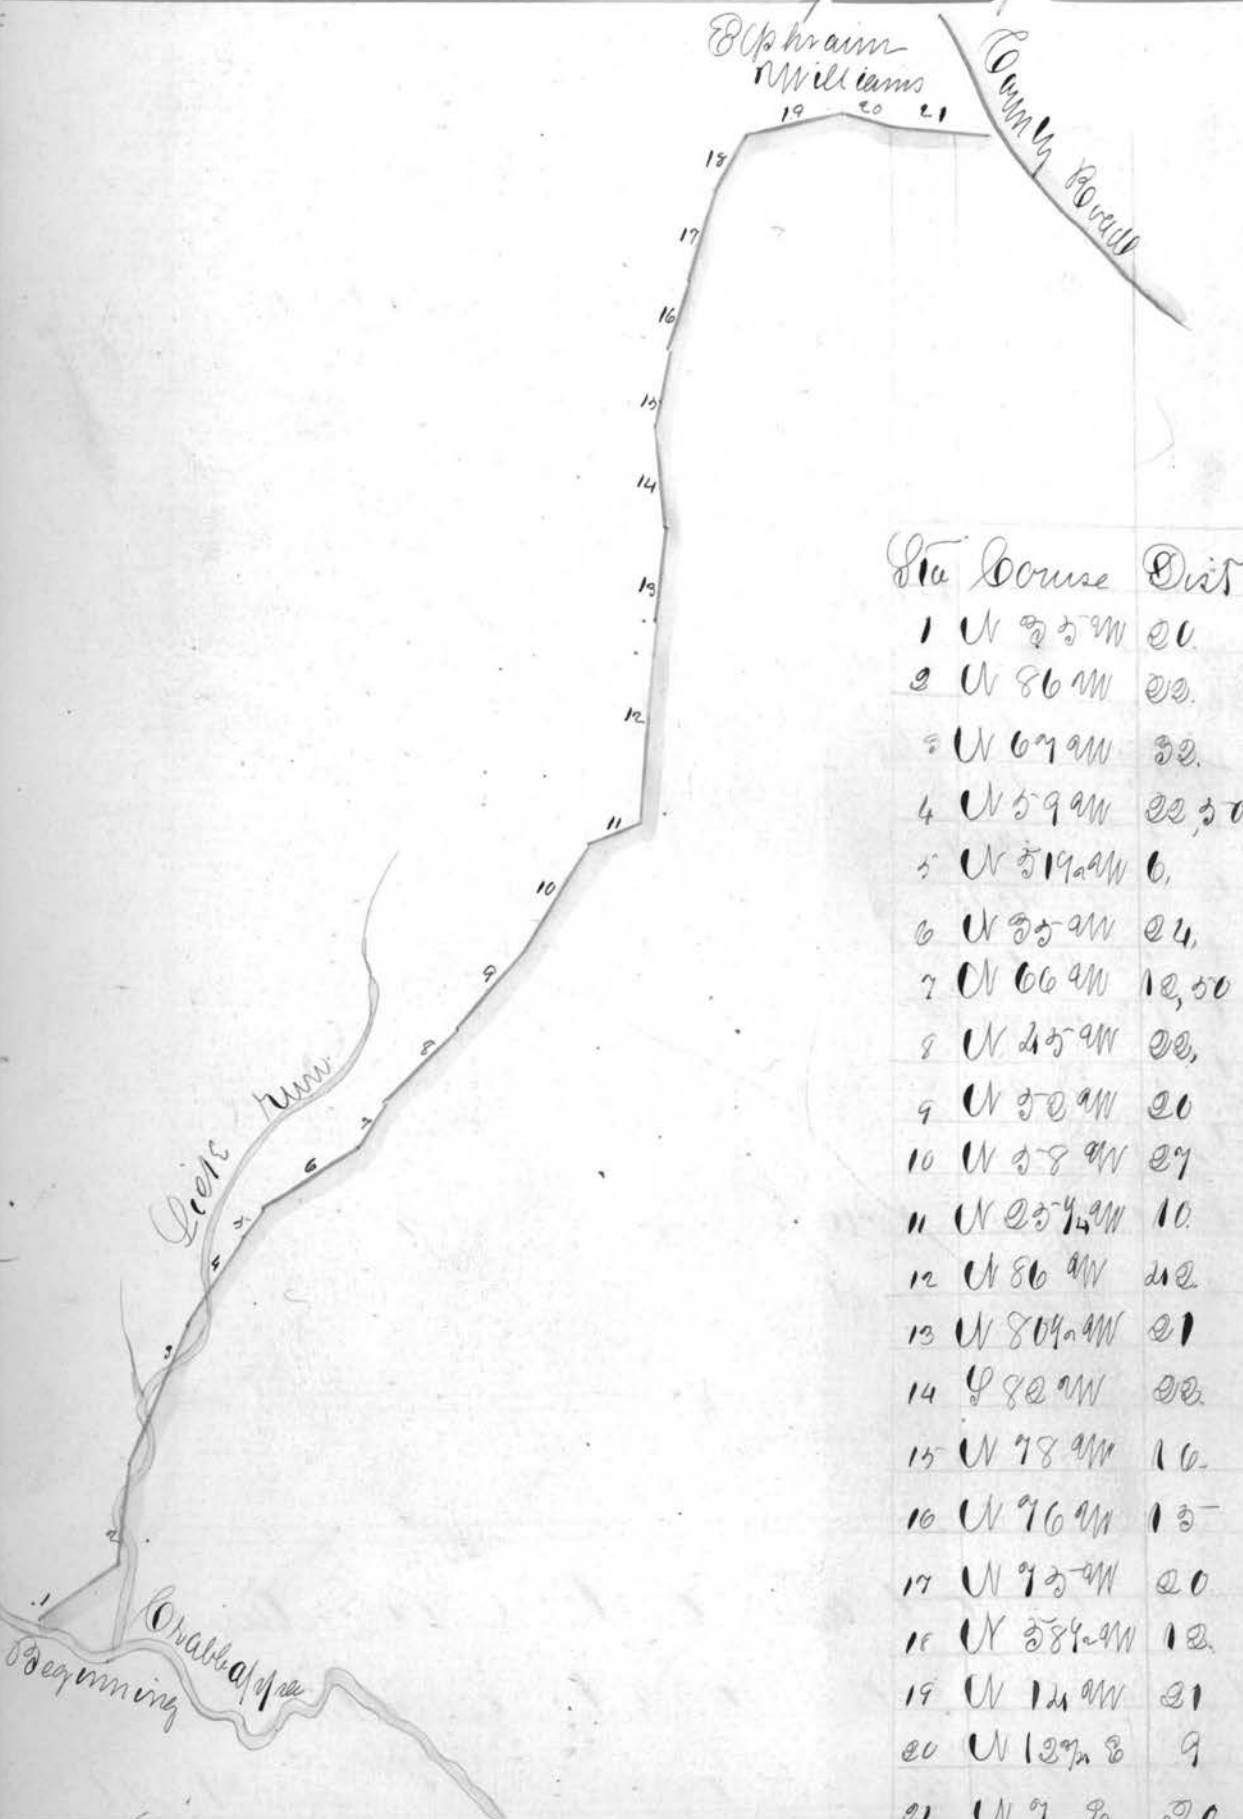 Ephraim
Williams
County Roade
19 20 21
18
17
16
15
14
13
12
11
10
9
8
7
6
5
4
3
2
1
Lick run
Crabbapple
Beginning
Sta Course Dist
1 N 35 W 20.
2 N 86 W 22.
3 N 67 W 32.
4 N 59 W 22,50
5 N 51 1/2 W 6,
6 N 35 W 24,
7 N 66 W 12,50
8 N 45 W 22,
9 N 52 W 20
10 N 58 W 27
11 N 25 1/4 W 10.
12 N 86 W 42.
13 N 80 1/2 W 21
14 S 82 W 22.
15 N 78 W 16.
16 N 76 W 15
17 N 75 W 20
18 N 58 1/2 W 12.
19 N 14 W 21
20 N 12 1/2 E 9
21 N 7 E 20